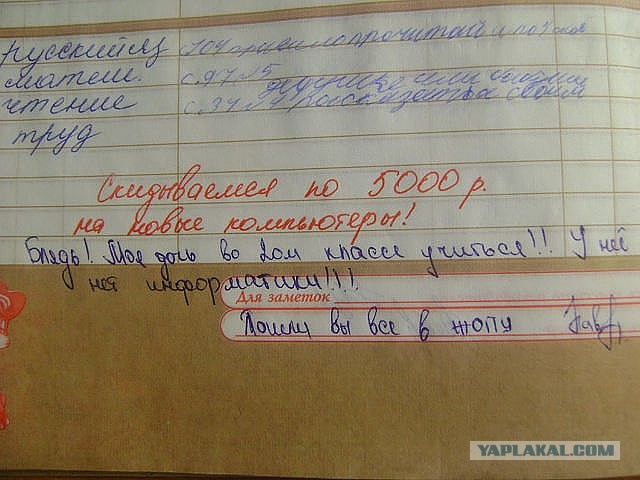 русский яз 104 правило прочитать и
матем. с.97 №5
чтение с.34 №4
труд
Скидываемся по 5000 р.
на новые компьютеры!
Блядь! Моя дочь во 2ом классе учиться!! У неё
нет информатики!!!
Для заметок
Пошли вы все в жопу
YAPLAKAL.COM